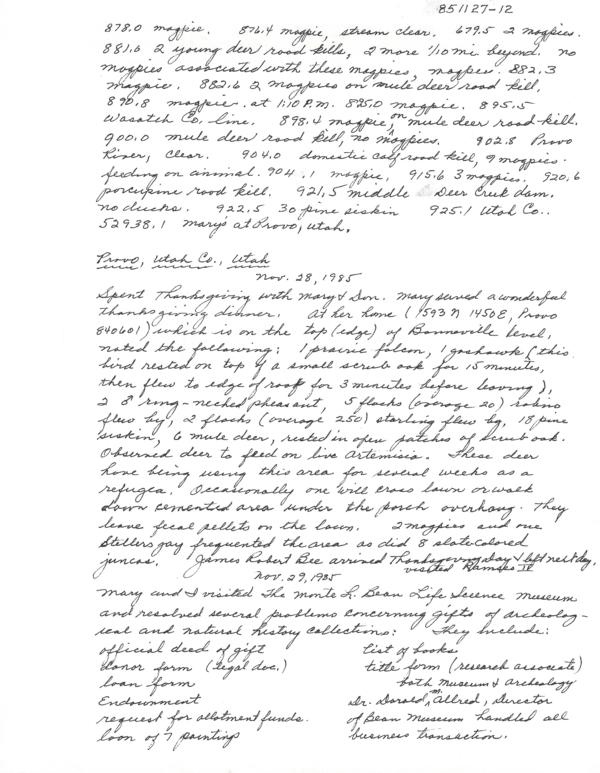 851127-12
878.0 magpie. 876.4 magpie, stream clear. 679.5 2 magpies.
881.6 2 young deer road kills, 2 more 1/10 mi. beyond. no
magpies associated with these magpies, magpies. 882.3
magpie. 882.6 2 magpies on mule deer road kill.
890.8 magpie. at 1:10 P.M. 895.0 magpie. 895.5
Wasatch Co. line. 898.4 magpie, on mule deer road kill.
900.0 mule deer road kill, no magpies. 902.8 Provo
River, clear. 904.0 domestic calf road kill, 9 magpies.
feeding on animal. 904.1 magpie. 915.6 3 magpies. 920.6
porcupine road kill. 921.5 middle Deer Creek dam.
no ducks. 922.5 30 pine siskin 925.1 Utah Co..
52938.1 Mary's at Provo, Utah.
Provo, Utah Co., Utah
Nov. 28, 1985
Spent Thanksgiving with Mary & Don. Mary served a wonderful
thanksgiving dinner. At her home (1593 N 1450 E, Provo
840601) which is on the top (edge) of Bonneville level,
noted the following: 1 prairie falcon, 1 goshawk (this
bird rested on top of a small scrub oak for 15 minutes,
then flew to edge of roof for 3 minutes before leaving),
2 ♂ ring-necked pheasant, 5 flocks (average 20) robins
flew by, 2 flocks (average 250) starling flew by, 18 pine
siskin, 6 mule deer, rested in open patches of scrub oak.
Observed deer to feed on live Artemisia. These deer
have being using this area for several weeks as a
refugea. Occasionally one will cross lawn or walk
down cemented area under the porch overhang. They
leave fecal pellets on the lawn. 2 magpies and one
Stellers jay frequented the area as did 8 slatecolored
juncos. James Robert Bee arrived Thanksgiving Day & left next day.
visited Ramses II
Nov. 29, 1985
Mary and I visited The Monte L. Bean Life Science Museum
and resolved several problems concerning gifts of archeolog-
ical and natural history collections: They include:
official deed of gift list of books
donor form (legal doc.) title form (research associate)
loan form both Museum & Archeology
Endownment Dr. Dorald M. Allred, Director
request for allotment funds. of Bean Museum handled all
loan of 7 paintings business transaction.